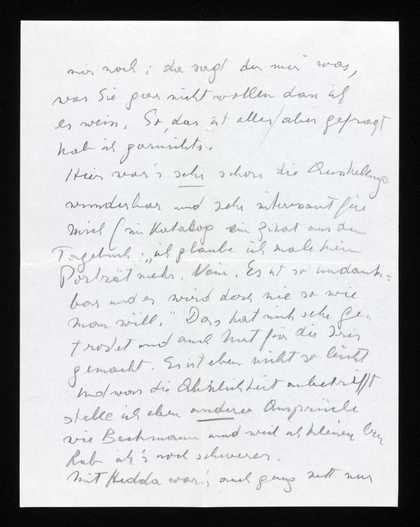 mir noch: da sagt der mir was,
was Sie gar nicht wollen dass ich
es weiss. So, das ist alles, aber gefragt
hab ich garnichts.
Hier war's sehr schön die Ausstellung
wunderbar und sehr interessant für
mich (im Katalog ein Zitat aus dem
Tagebuch: „ich glaube ich male kein
Porträt mehr. Nein. Es ist so undank=
bar und es wird doch nie so wie
man will." Das hat mich sehr ge-
tröstet und auch Mut für die
gemacht. Es ist eben nicht so leicht
und was die Ähnlichkeit anbetrifft
stelle ich eben andere Ansprüche
wie Beckmann und weil ich kleinen
hab ich's noch schwerer.
Mit Hedda war's auch ganz nett nur